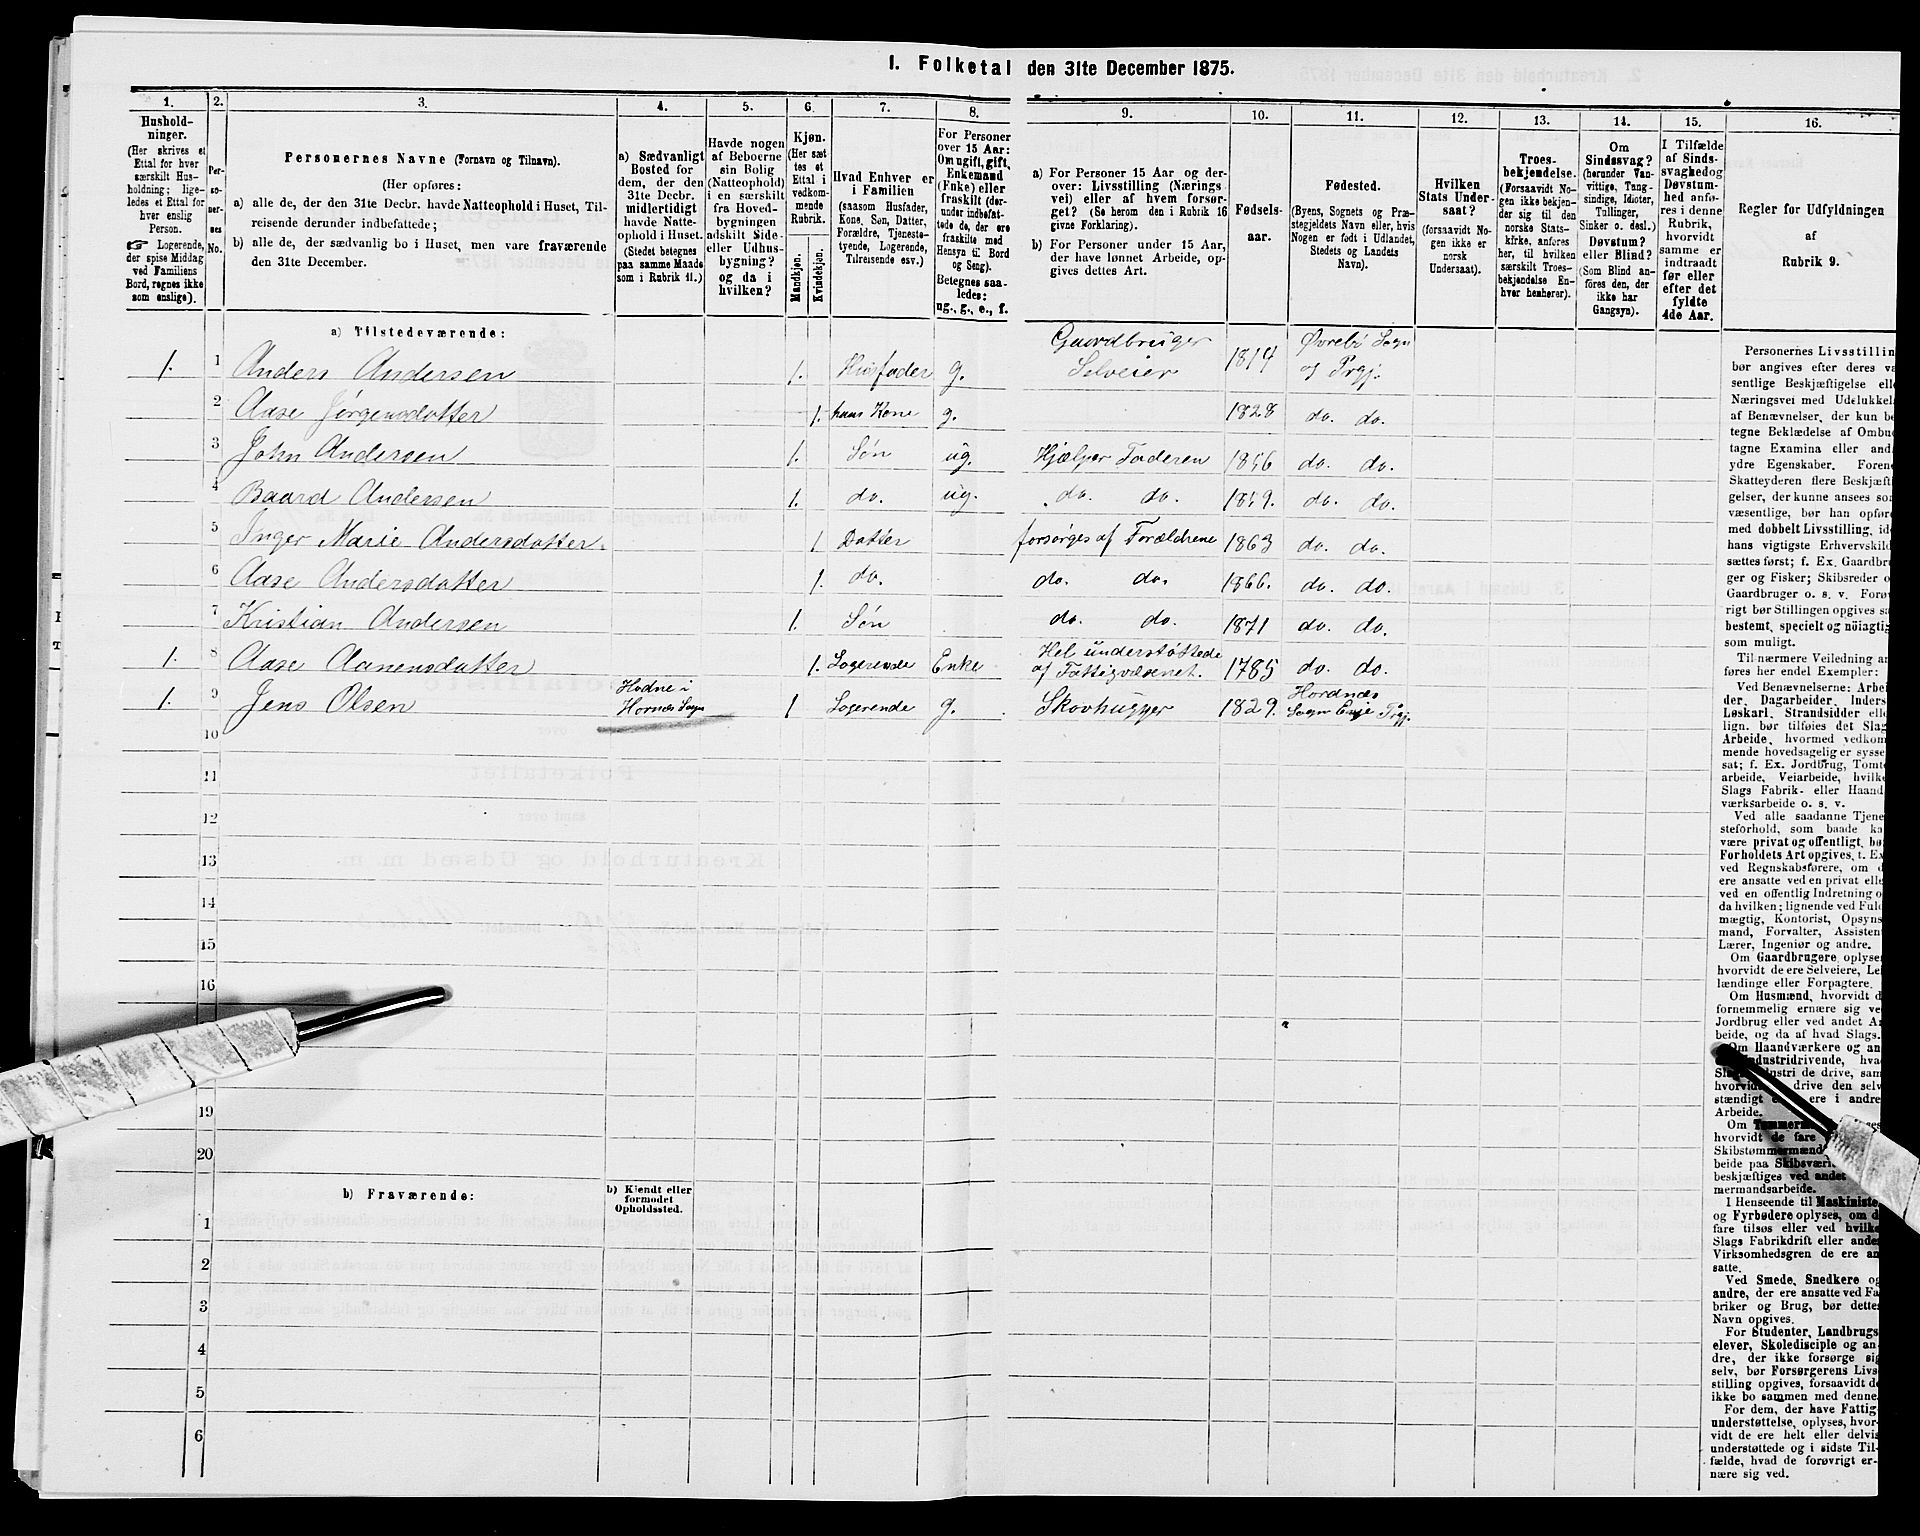 1. Folketal den 31te December 1875.
1. 2. 3. 4. 5. 6. 7. 8. 9. 10. 11. 12. 13. 14. 15. 16.
Hushold-
ninger.
(Her skrives et
Ettal for hver
særskilt Hus-
holdning; lige-
ledes et Ettal for
hver enslig
Person.
☞ Logerende,
der spise Middag
ved Familiens
Bord, regnes ikke
som enslige).
Per-
so-
ner-
nes
No.
Personernes Navne (Fornavn og Tilnavn).
(Her opføres:
a) alle de, der den 31te Decbr. havde Natteophold i Huset, Til-
reisende derunder indbefattede;
b) alle de, der sædvanlig bo i Huset, men vare fraværende
den 31te December.
a) Sædvanligt
Bosted for
dem, der den
31te Decbr.
midlertidigt
havde Natte-
ophold i Huset.
(Stedet betegnes
paa samme Maade
som i Rubrik 11.)
Havde nogen
af Beboerne
sin Bolig
(Natteophold)
i en særskilt
fra Hoved-
bygningen
adskilt Side-
eller Udhus-
bygning?
og da i
hvilken?
Kjøn.
(Her sæt-
tes et
Ettal i
vedkom-
mende
Rubrik.
Mandkjøn.
Kvindekjøn.
Hvad Enhver er
i Familien
(saasom Husfader,
Kone, Søn, Datter,
Forældre, Tjeneste-
tyende, Logerende,
Tilreisende osv.)
For Personer
over 15 Aar:
Om ugift, gift,
Enkemand
(Enke) eller
fraskilt (der-
under indbefat-
tede de, der ere
fraskilte med
Hensyn til Bord
og Seng).
Betegnes saa-
ledes:
ug., g., e., f.
a) For Personer 15 Aar og der-
over: Livsstilling (Nærings-
vei) eller af hvem forsør-
get? (Se herom den i Rubrik 16
givne Forklaring).
b) For Personer under 15 Aar,
der have lønnet Arbeide, op-
gives dettes Art.
Fødsels-
aar.
Fødested.
(Byens, Sognets og Præ-
stegjeldets Navn eller, hvis
Nogen er født i Udlandet,
Stedets og Landets
Navn).
Hvilken
Stats Under-
saat?
(forsaavidt No-
gen ikke er
norsk
Undersaat).
Troes-
bekjendelse.
(Forsaavidt No-
gen ikke bekjen-
der sig til den
norske Stats-
kirke, anføres
her, til hvilken
særskilt Troes-
bekjendelse En-
hver henhører).
Om
Sindssvag?
(herunder Van-
vittige, Tung-
sindige, Idioter,
Tullinger,
Sinker o. desl.)
Døvstum?
eller Blind?
(Som Blind an-
føres den, der
ikke har
Gangsyn).
I Tilfælde
af Sinds-
svaghed og
Døvstum-
hed anfø-
res i denne
Rubrik,
hvorvidt
samme er
indtraadt
før eller
efter det
fyldte
4de Aar.
Regler for Udfyldningen
af
Rubrik 9.
a) Tilstedeværende:
1. 1 Anders Andersen 1. Husfader g. Gaardbruger Selveier 1814 Øvrebø Sogn og Prgj.
2 Aase Jørgensdatter 1. hans Kone g. 1828 do. do.
3 John Andersen 1. Søn ug. Hjælper Faderen 1856 do. do.
4 Baard Andersen 1. do. ug. do. do. 1859. do. do.
5 Inger Marie Andersdatter. 1 Datter forsørges af Forældrene 1863 do. do.
6 Aase Andersdatter 1. do. do. do. 1866. do. do.
7 Kristian Andersen 1. Søn do. do. 1871 do. do.
1. 8 Aase Aanensdatter 1. Logerende Enke Hel understøttede af Fattigvæsenet. 1785 do. do.
1. 9 Jens Olsen Hodne i Hornes Sogn 1 Logerende g. Skovhugger 1829. Hordnæs Sogn Evje Prgj.
10
11
12
13
14
15
16
19
20
b) Fraværende:
b) Kjendt eller
formodet
Opholdssted.
1
2
3
4
5
6
Personernes Livsstillin
bør angives efter deres va
sentlige Beskjæftigelse elle
Næringsvei med Udelukkels
af Benævnelser, der kun be
tegne Beklædelse af Ombud
tagne Examina eller andr
ydre Egenskaber. Foren
Skatteyderen flere Beskjæfti
gelser, der kunne ansees som
væsentlige, bør han opføre
med dobbelt Livsstilling, ide
hans vigtigste Erhvervskild
sættes først; f. Ex. Gaardbru
ger og Fisker; Skibsreder o
Gaardbruger o. s. v. Forøv
rigt bør Stillingen opgives sa
bestemt, specielt og nöiagtig
som muligt.
Til nærmere Veiledning an
føres her endel Exempler:
Ved Benævnelserne: Arbei
der, Dagarbeider, Inders
Løskarl, Strandsidder elle
lign. bør tilføies det Slag
Arbeide, hvormed vedkom
mende hovedsagelig er syssel
sat; f. Ex. Jordbrug, Tomte
arbeide, Veiarbeide, hvilke
Slags Fabrik- eller Haand
værksarbeide o. s. v.
Ved alle saadanne Tjene
steforhold, som baade ka
være privat og offentligt, bø
Forholdets Art opgives, t. Ex
ved Regnskabsførere, om d
ere ansatte ved en privat elle
ved en offentlig Indretning o
da hvilken; lignende ved Fuld
mægtig, Kontorist, Opsyns
mand, Forvalter, Assistent
Lærer, Ingeniør og andre.
Om Gaardbrugere oplyses
hvorvidt de ere Selveiere, Lei
lændinge eller Forpagtere.
Om Husmænd, hvorvidt d
fornemmelig ernære sig ve
Jordbrug eller ved andet Ar
beide, og da af hvad Slags.
Om Haandværkere og an
Industridrivende, hva
Slags Industri de drive, sam
hvorvidt drive den selv
stændigt ere i andre
Arbeide.
Om Tømmerm
hvorvidt de fare
Skibstømmermænd
beide paa Skibsværft
beskjæftiges ved andet
mermandsarbeide.
I Henseende til Maskiniste
og Fyrbødere oplyses, om d
fare tilsøs eller ved hvilke
Slags Fabrikdrift eller ande
Virksomhedsgren de ere an
satte.
Ved Smede, Snedkere og
andre, der ere ansatte ved Fa
briker og Brug, bør dette
Navn opgives.
For Studenter, Landbrugs
elever, Skoledisciple og an
dre, der ikke forsørge sig
selv, bør Forsørgerens Livs
stilling opgives, forsaavidt de
ikke bo sammen med denne.
For dem, der have Fattig-
understøttelse, oplyses, hvor-
vidt de ere helt eller delvis
understøttede og i sidste Til-
fælde, hvad de forøvrigt er-
nære sig ved.